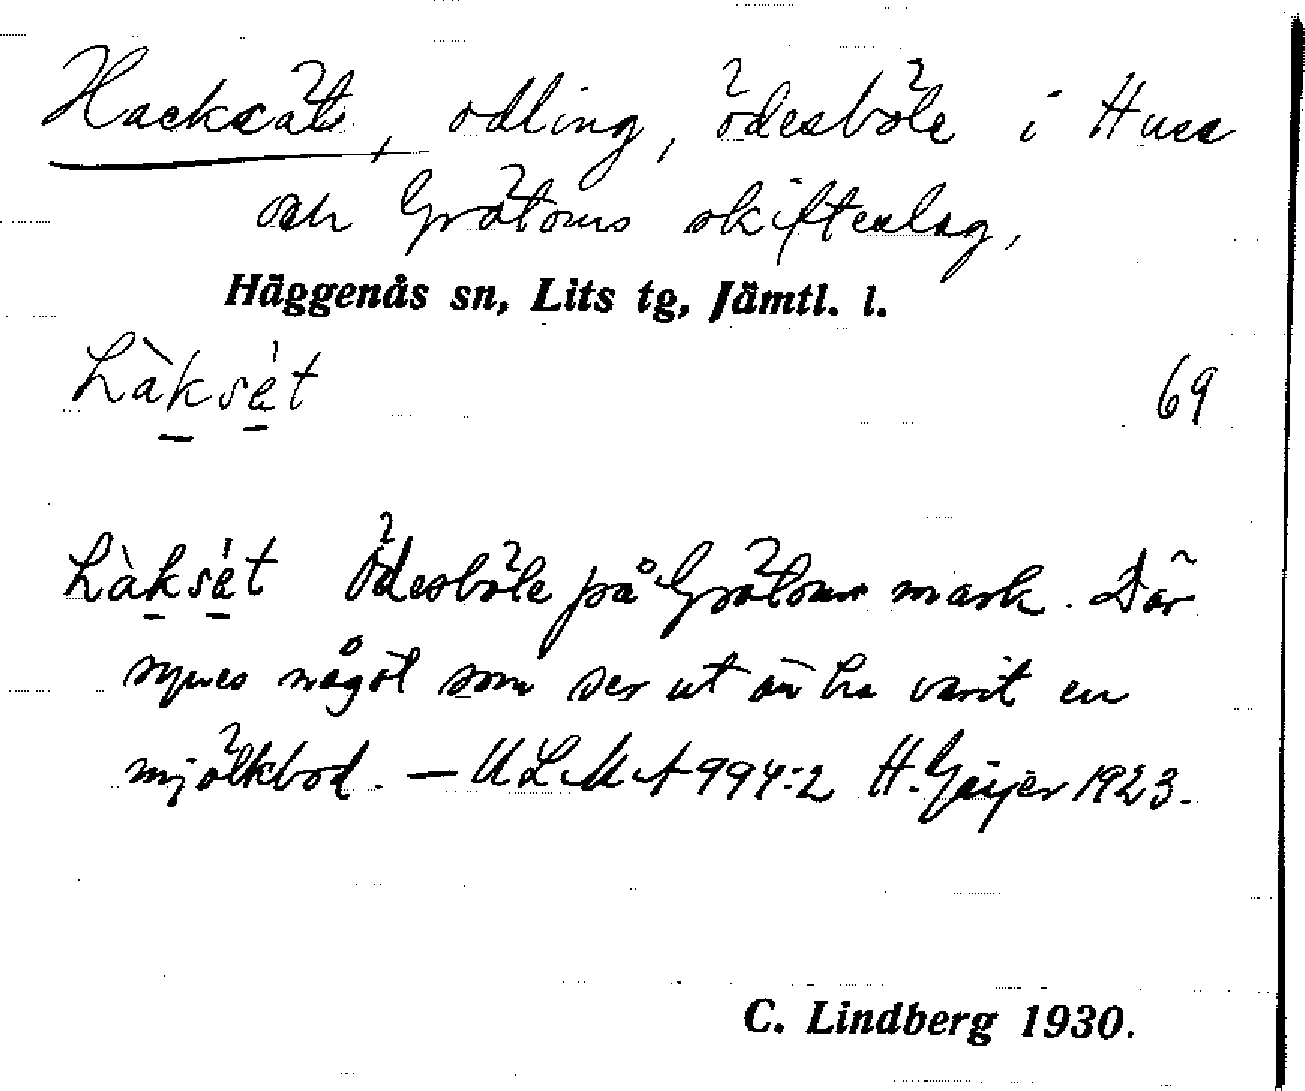 Hacksät, odling, ödesböle i Huse
och Gråtåns skifteslag,
Häggenås sn, Lits tg, Jämtl. l.
Làksét
69
Làksét Ödesböle på mark. Där
synes något som ser ut att ha varit en
mjölkbod. — ULMA 994:2 H. Geijer 1923.
C. Lindberg 1930.